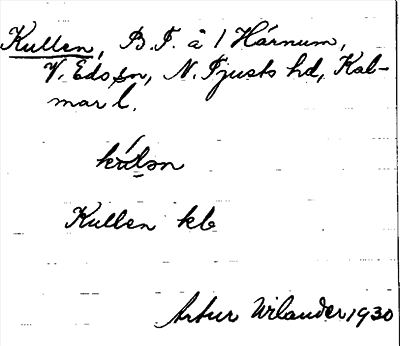 Kullen, B.F. å 1 Hårnum,
V. Eds sn, N. Tjusts hd, Kal-
mar l.
Kullen kb
Artur Wilander 1930